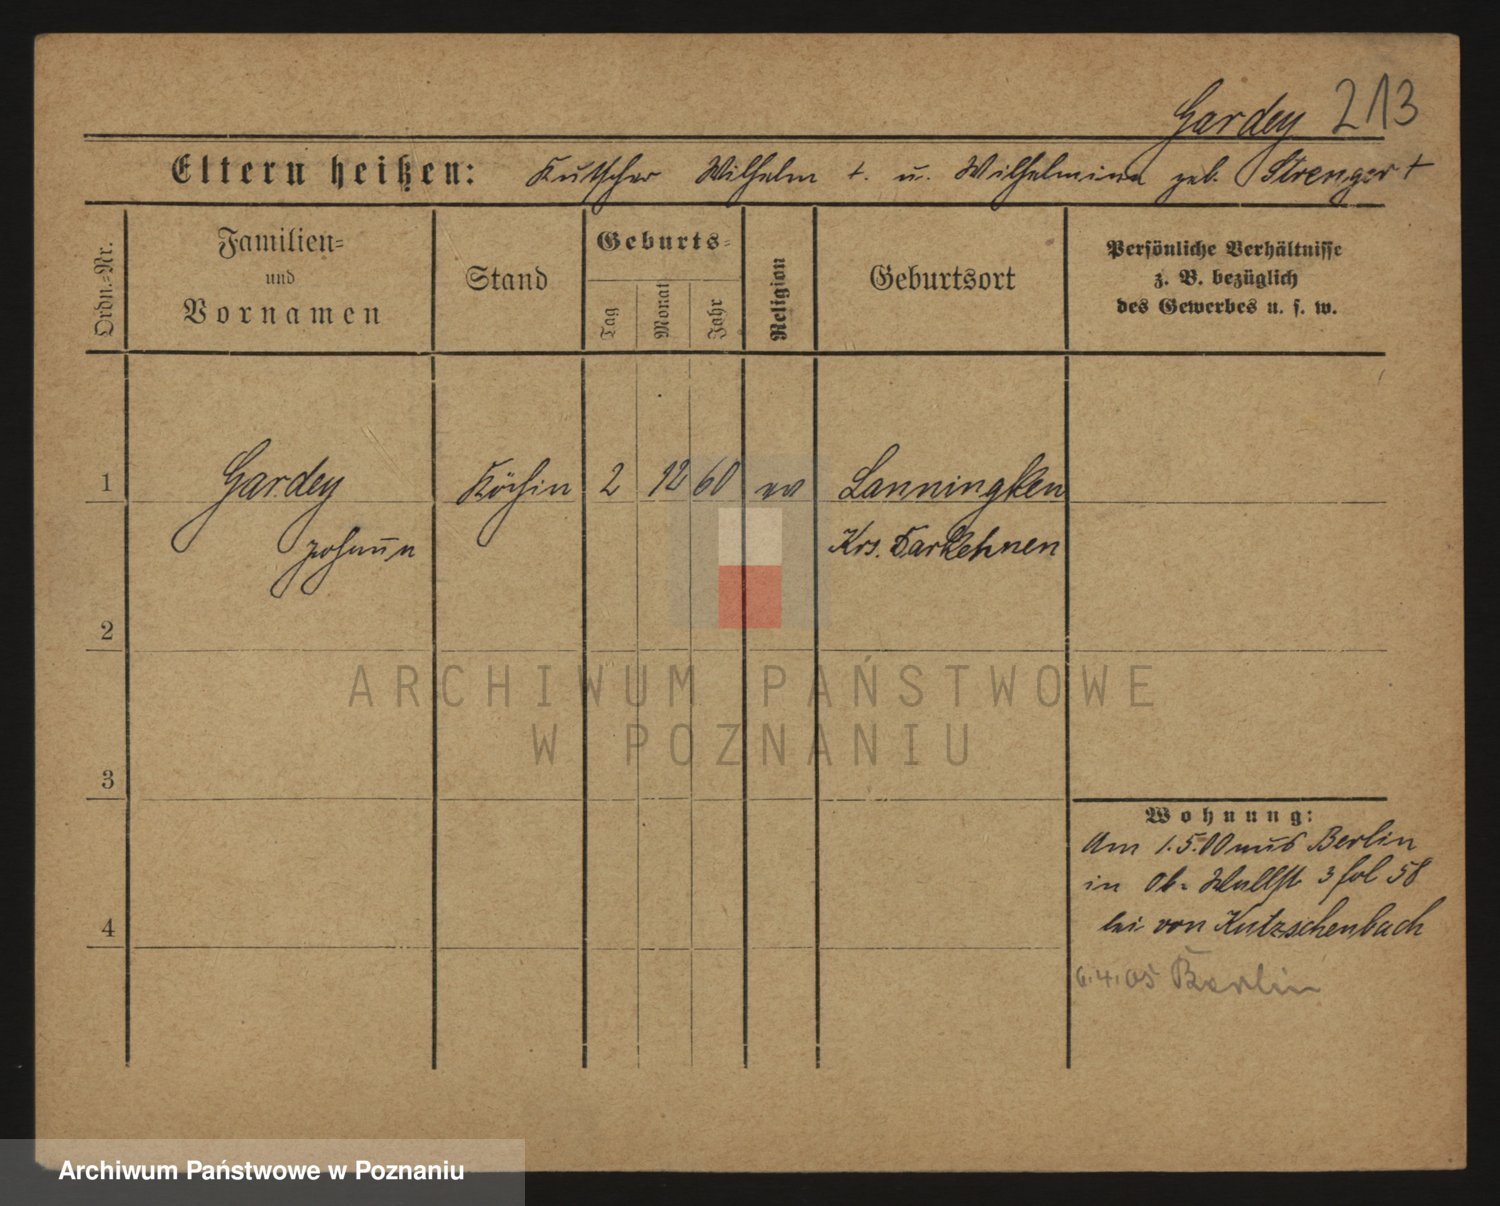 Gardey 213
Eltern heißen: Kutscher Wilhelm †. u. Wilhelmine geb. Strenger †
Ordn.-Nr.
Familien-
und
Vornamen
Stand
Geburts-
Tag
Monat
Jahr
Religion
Geburtsort
Persönliche Verhältnisse
z. B. bezüglich
des Gewerbes u. s. w.
1 Gardey Köchin 2 12 60 ev Lanningken
Krs. Darkehnen
2
3
4
Wohnung:
Am 1.5.00 aus Berlin
in Ob. Wallst. 3 fol 58
bei von Kutzschenbach
6.4.05 Berlin
ARCHIWUM PAŃSTWOWE
W POZNANIU
Archiwum Państwowe w Poznaniu